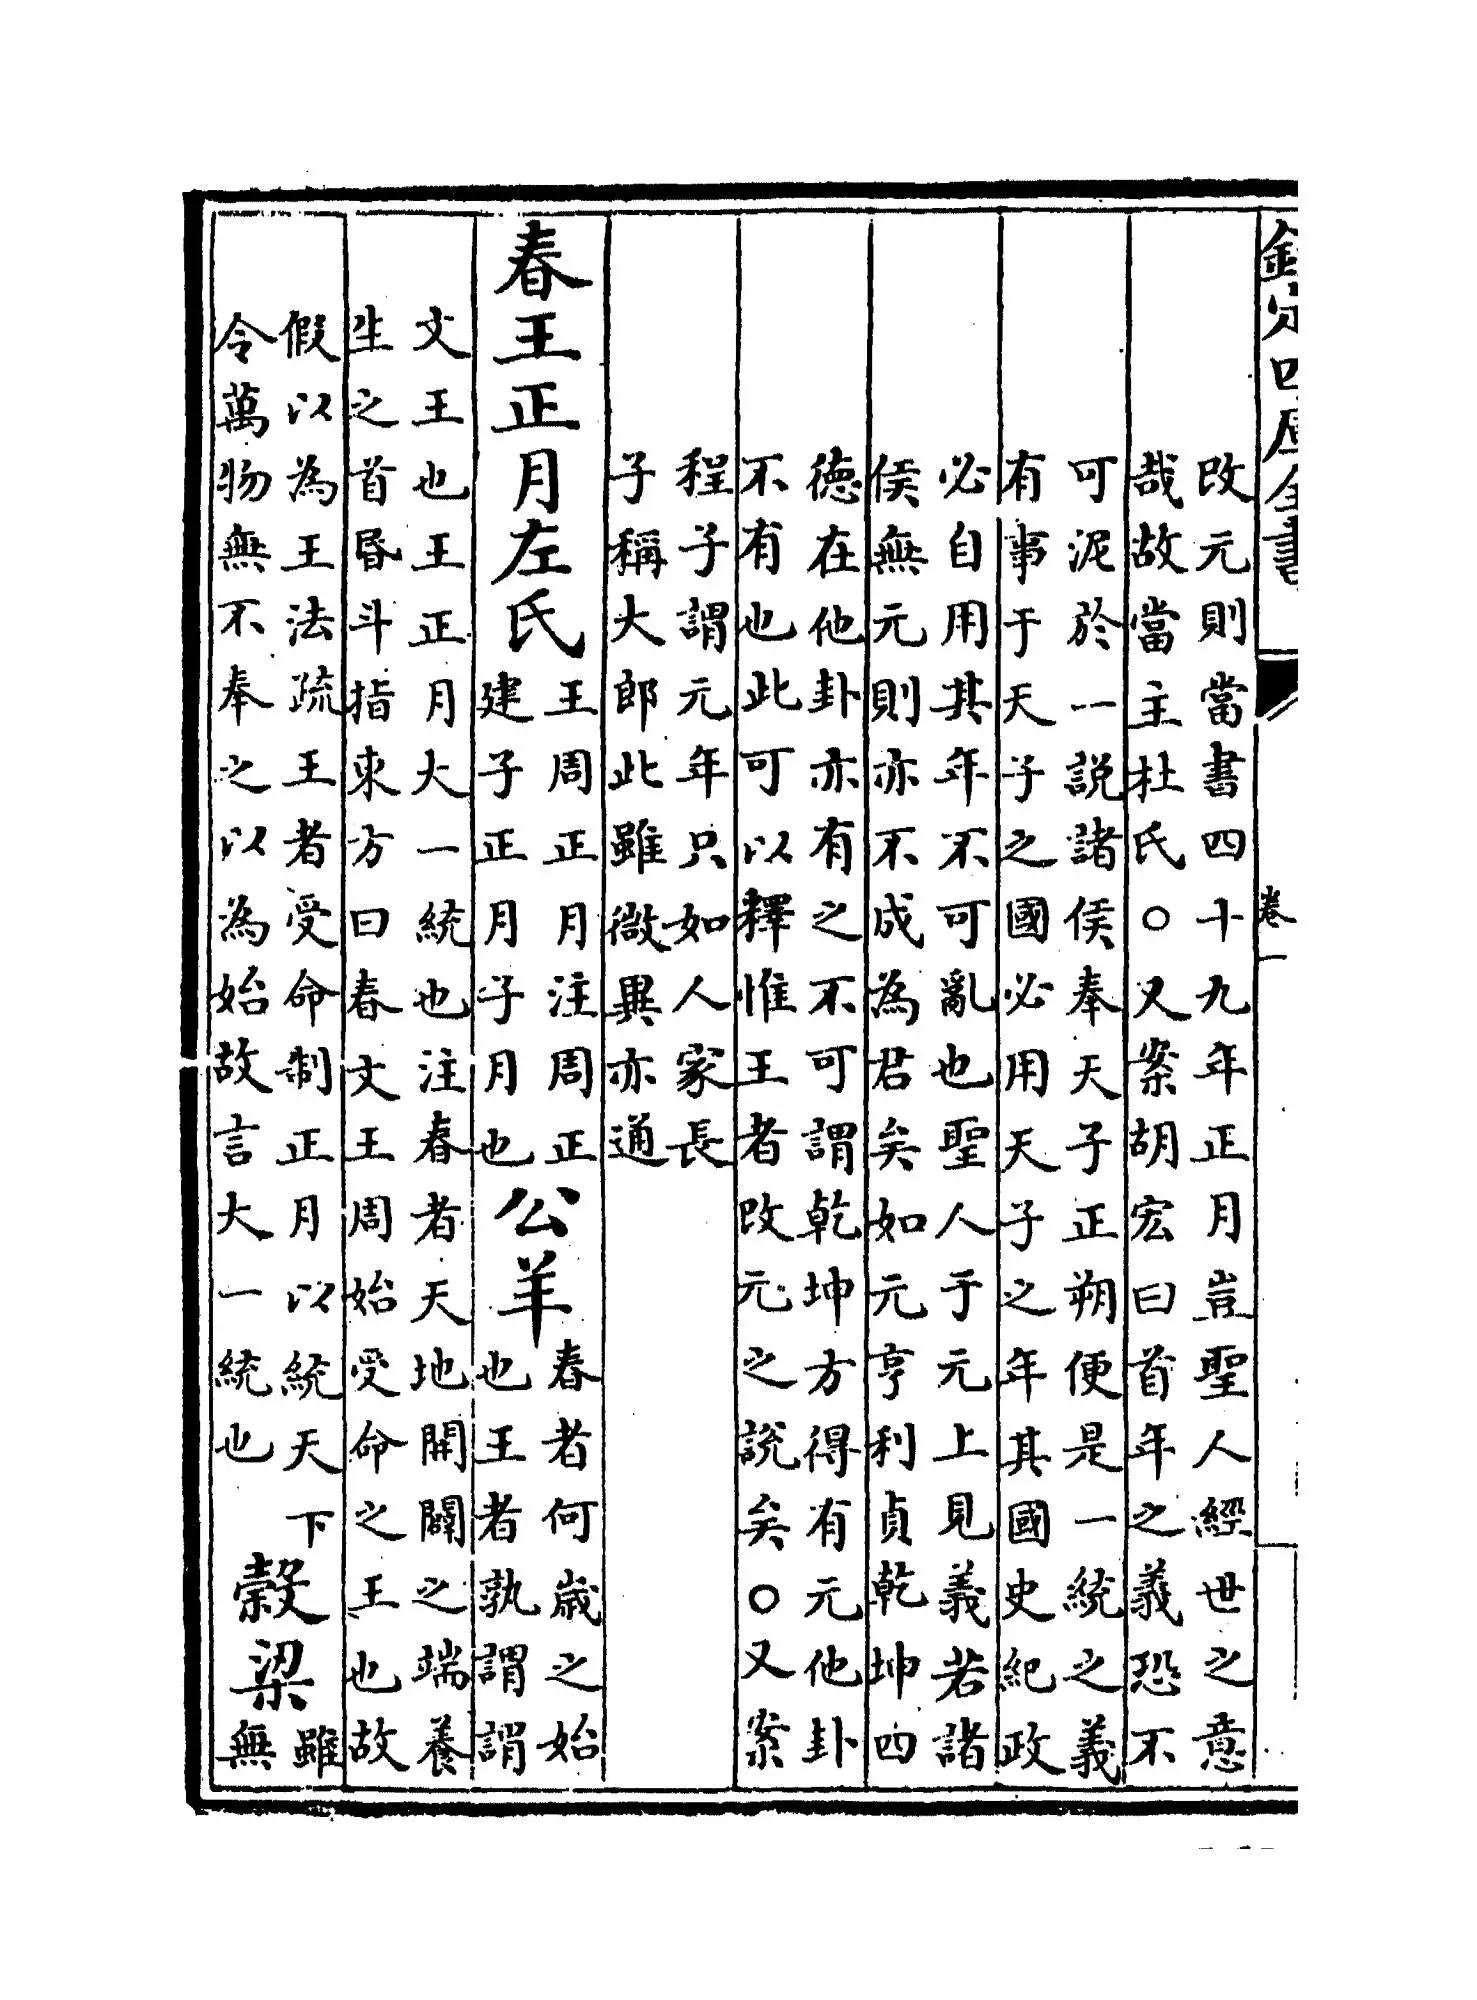 欽定四庫全書
卷一
改元則當書四十九年正月豈聖人經世之意
哉故當主杜氏○又案胡宏曰首年之義恐不
可泥於一說諸侯奉天子正朔便是一統之義
有事于天子之國必用天子之年其國史紀政
必自用其年不可亂也聖人于元上見義若諸
侯無元則亦不成為君矣如元亨利貞乾坤四
德在他卦亦有之不可謂乾坤方得有元他卦
不有也此可以釋惟王者改元之說矣○又案
程子謂元年只如人家長
子稱大郎此雖微異亦通
春王正月左氏
王周正月注周正
建子正月子月也
公羊
春者何歲之始
也王者孰謂謂
文王也王正月大一統也注春者天地開闢之端養
生之首昬斗指東方曰春文王周始受命之王也故
假以為王法疏王者受命制正月以統天下
令萬物無不奉之以為始故言大一統也
穀梁
雖
無